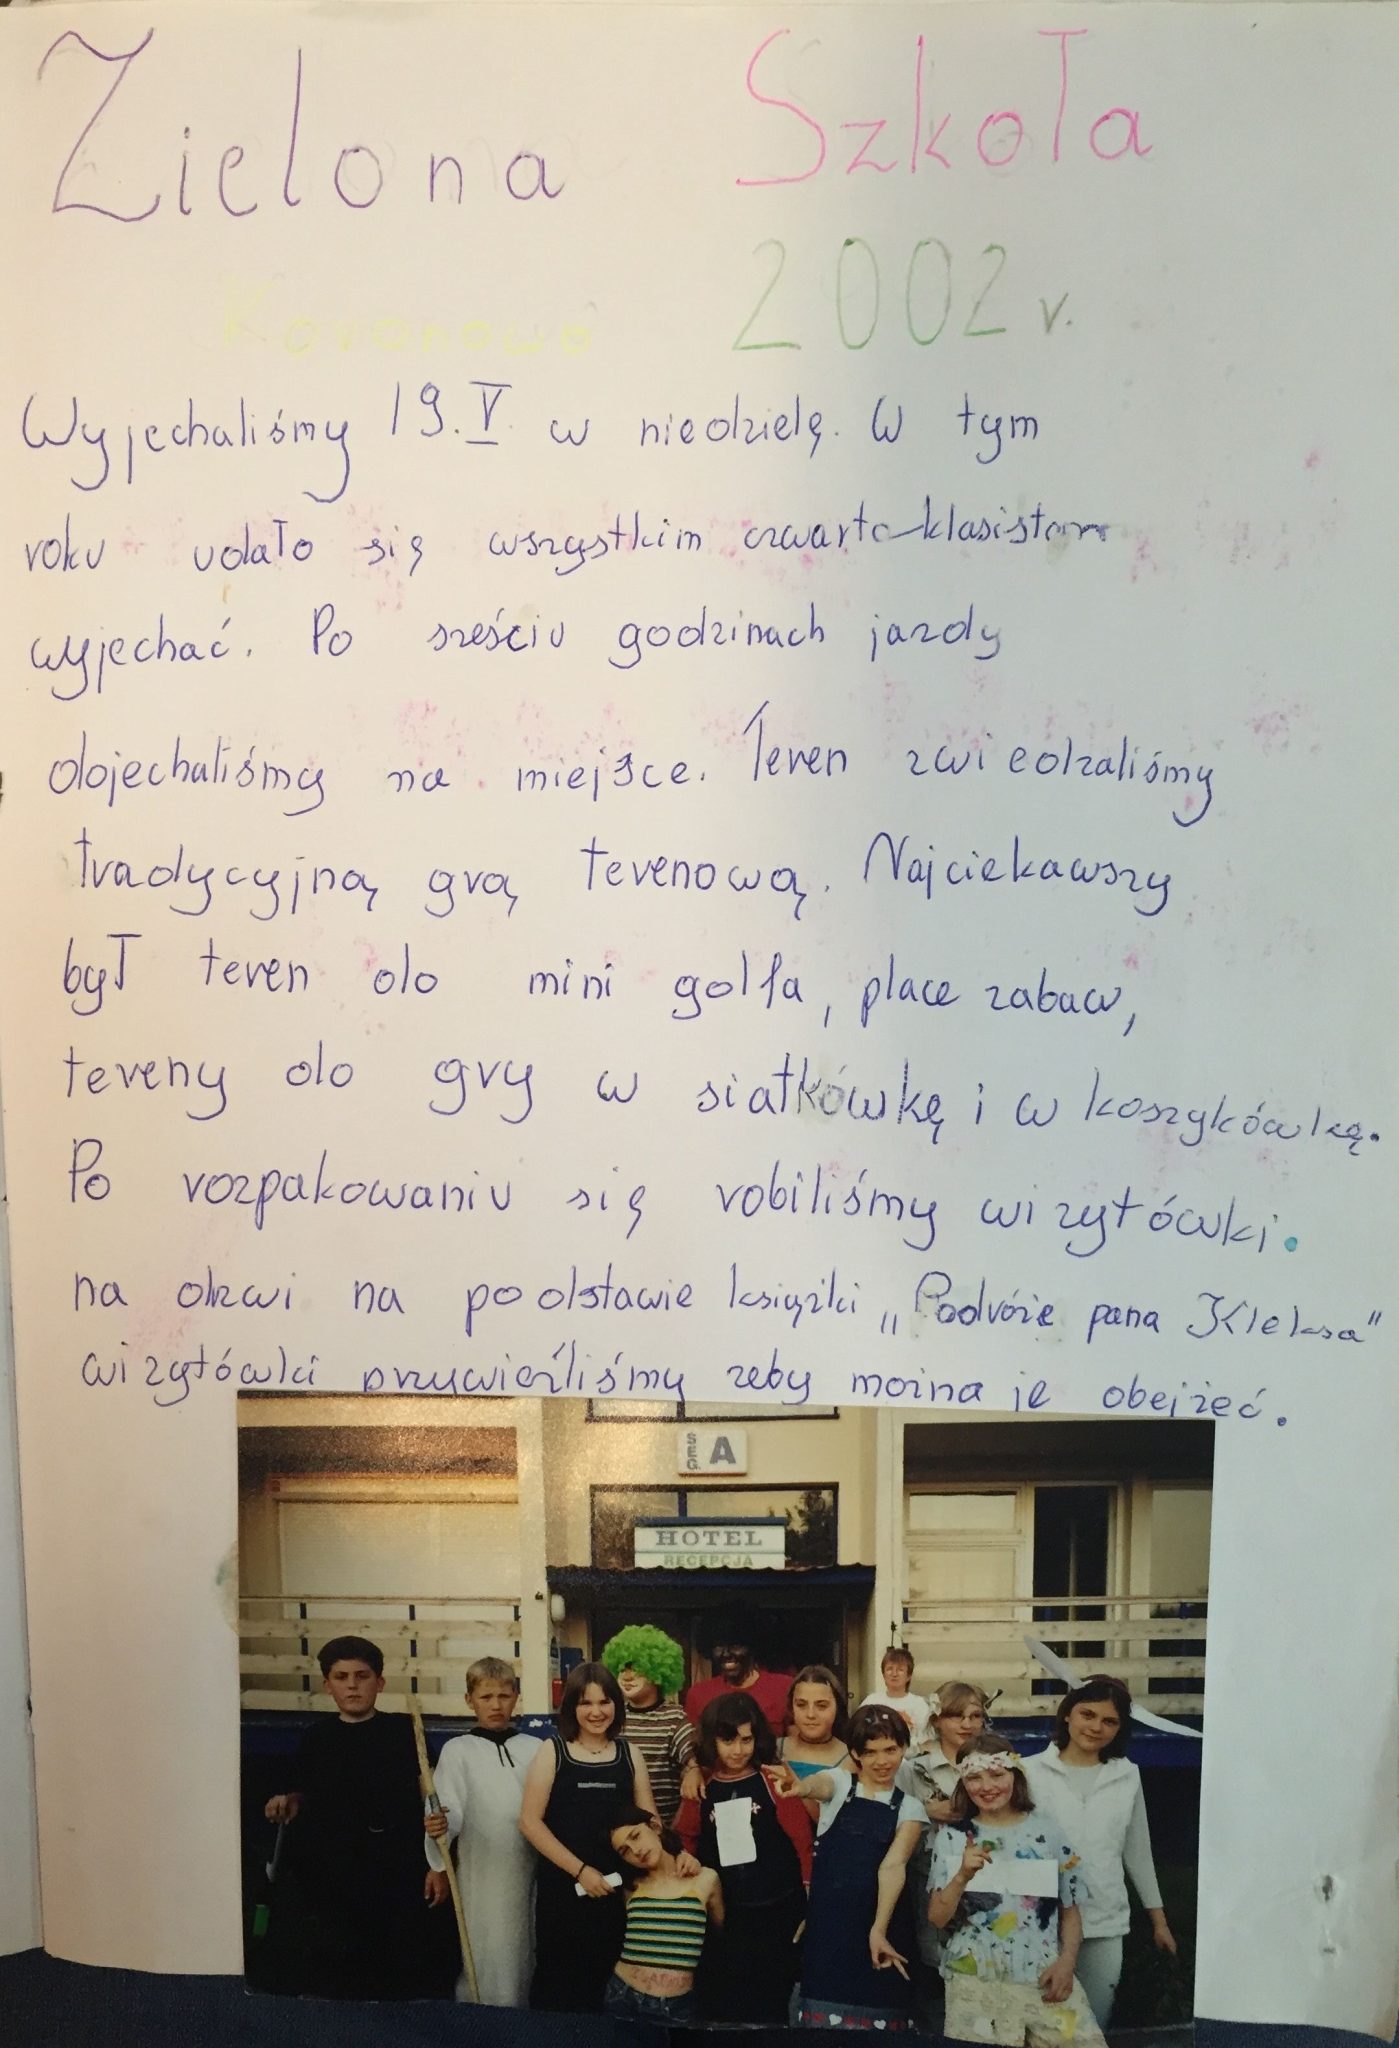 Zielona Szkoła
Koronowo 2002 r.
Wyjechaliśmy 19.V. w niedzielę. W tym
roku udało się wszystkim czwarto-klasistom
wyjechać. Po sześciu godzinach jazdy
dojechaliśmy na miejsce. Teren zwiedzaliśmy
tradycyjną grą terenową. Najciekawszy
był teren do mini golfa, place zabaw,
tereny do gry w siatkówkę i w koszykówkę.
Po rozpakowaniu się robiliśmy wizytówki.
na drzwi na podstawie książki „Podróże pana Kleksa"
wizytówki przywieźliśmy zeby można je obejżeć.
SEG. A
HOTEL
RECEPCJA